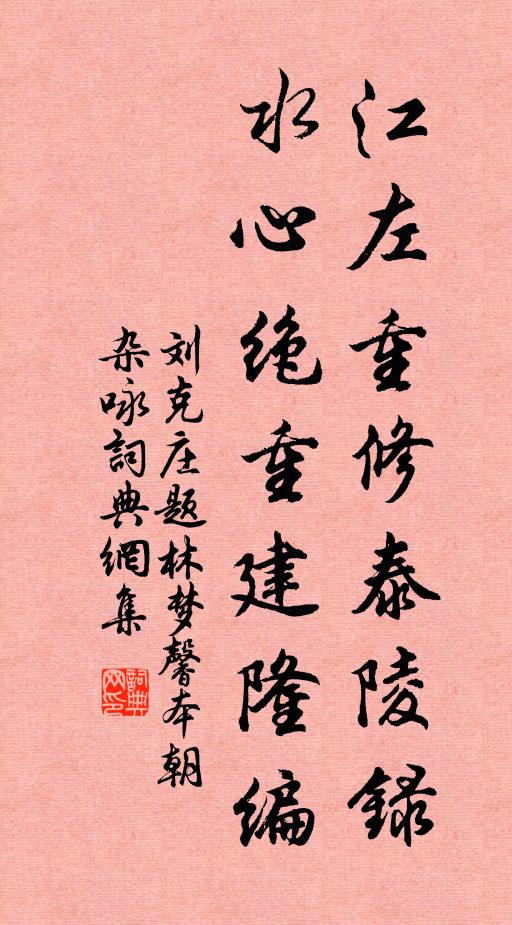 江左重修泰陵録
水心绝重建隆编
刘克庄题林梦馨本朝
杂咏詞典網集
詞典网印